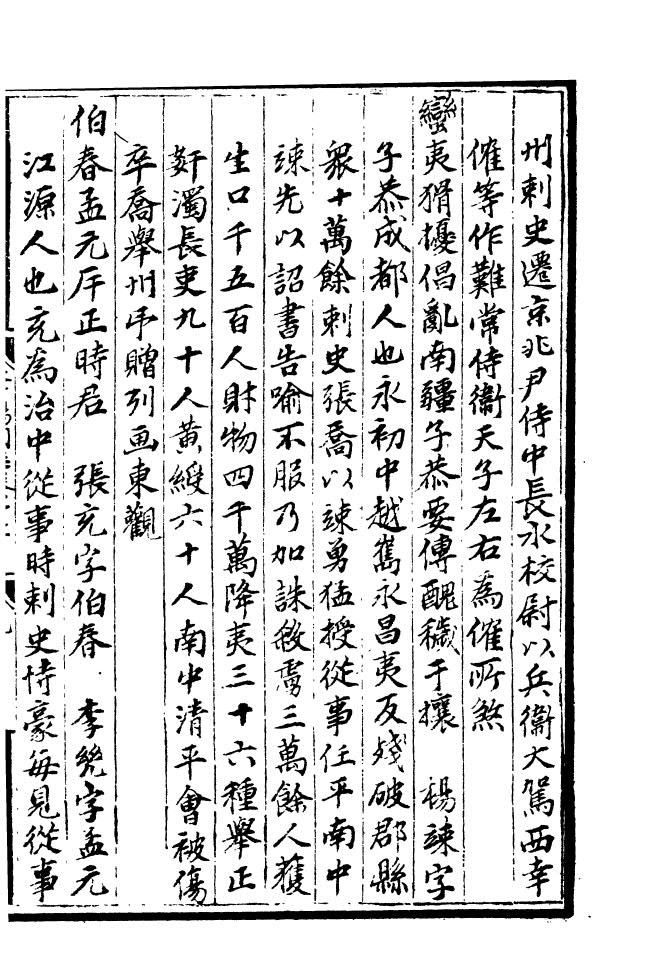 州刺史遷京兆尹侍中長水校尉以兵衛大駕西幸
傕等作難常侍衛天子左右為傕所煞
蠻夷猾擾倡亂南疆子恭要傳醜穢于攘　楊竦字
子恭成都人也永初中越嶲永昌夷反殘破郡縣
衆十萬餘刺史張喬以竦勇猛授從事任平南中
竦先以詔書告喻不服乃加誅煞虜三萬餘人獲
生口千五百人財物四千萬降夷三十六種舉正
奸濁長吏九十人黃綬六十人南中清平會被傷
卒喬舉州吊贈列画東觀
伯春孟元斥正時君　張充字伯春　李㲋字孟元
江源人也充為治中從事時刺史恃豪每見從事